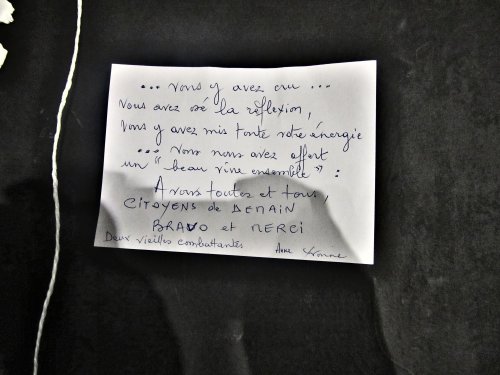 ... vous y avez cru ...
vous avez osé la réflexion,
vous y avez mis toute votre énergie
... vous nous avez offert
un "beau vivre ensemble" :
A vous toutes et tous,
CITOYENS de DEMAIN
BRAVO et MERCI
Deux vieilles combattantes Anne Yvonne